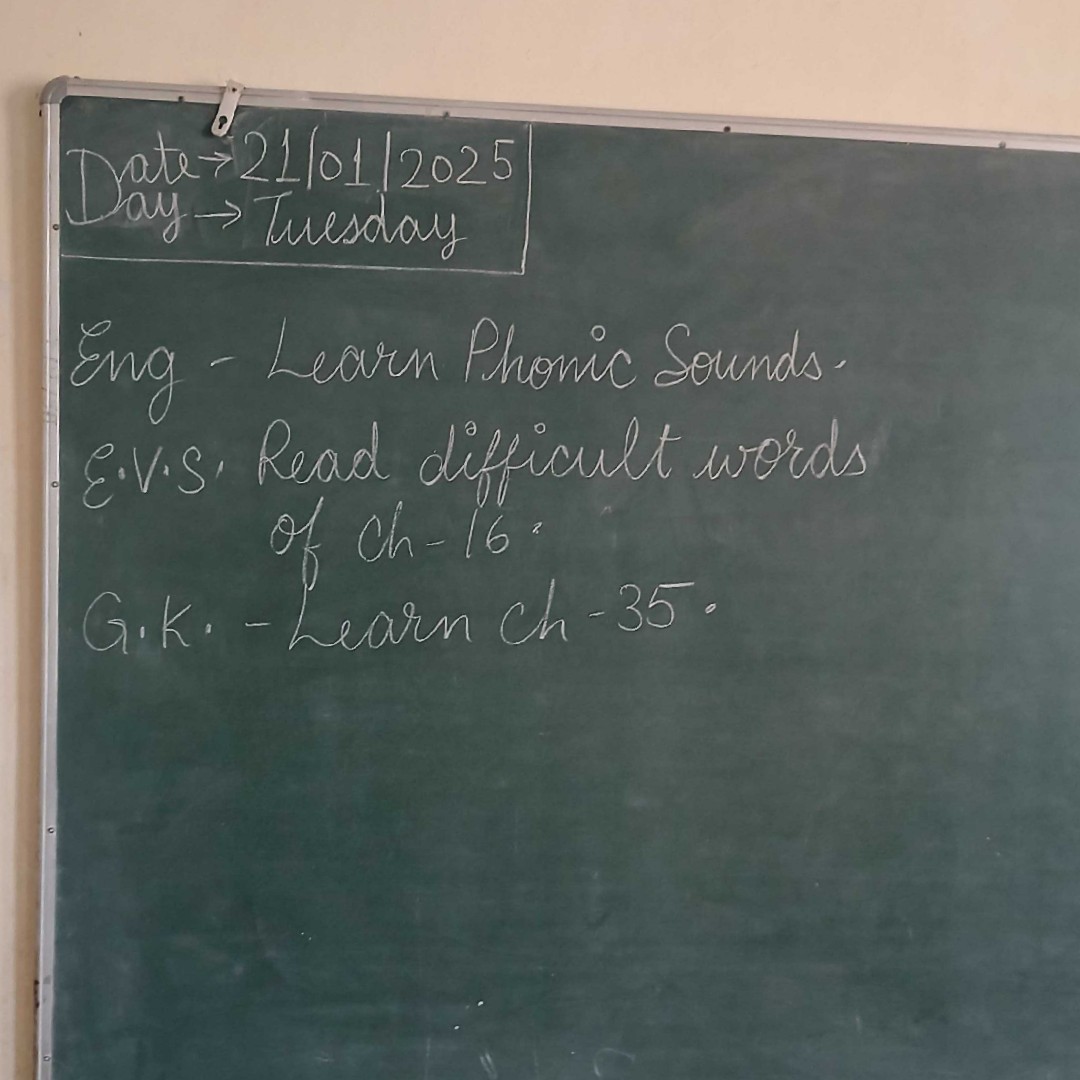 Date → 21/01/2025
Day → Tuesday
Eng - Learn Phonic Sounds.
E.V.S. Read difficult words
of Ch-16.
G.K. - Learn Ch-35.